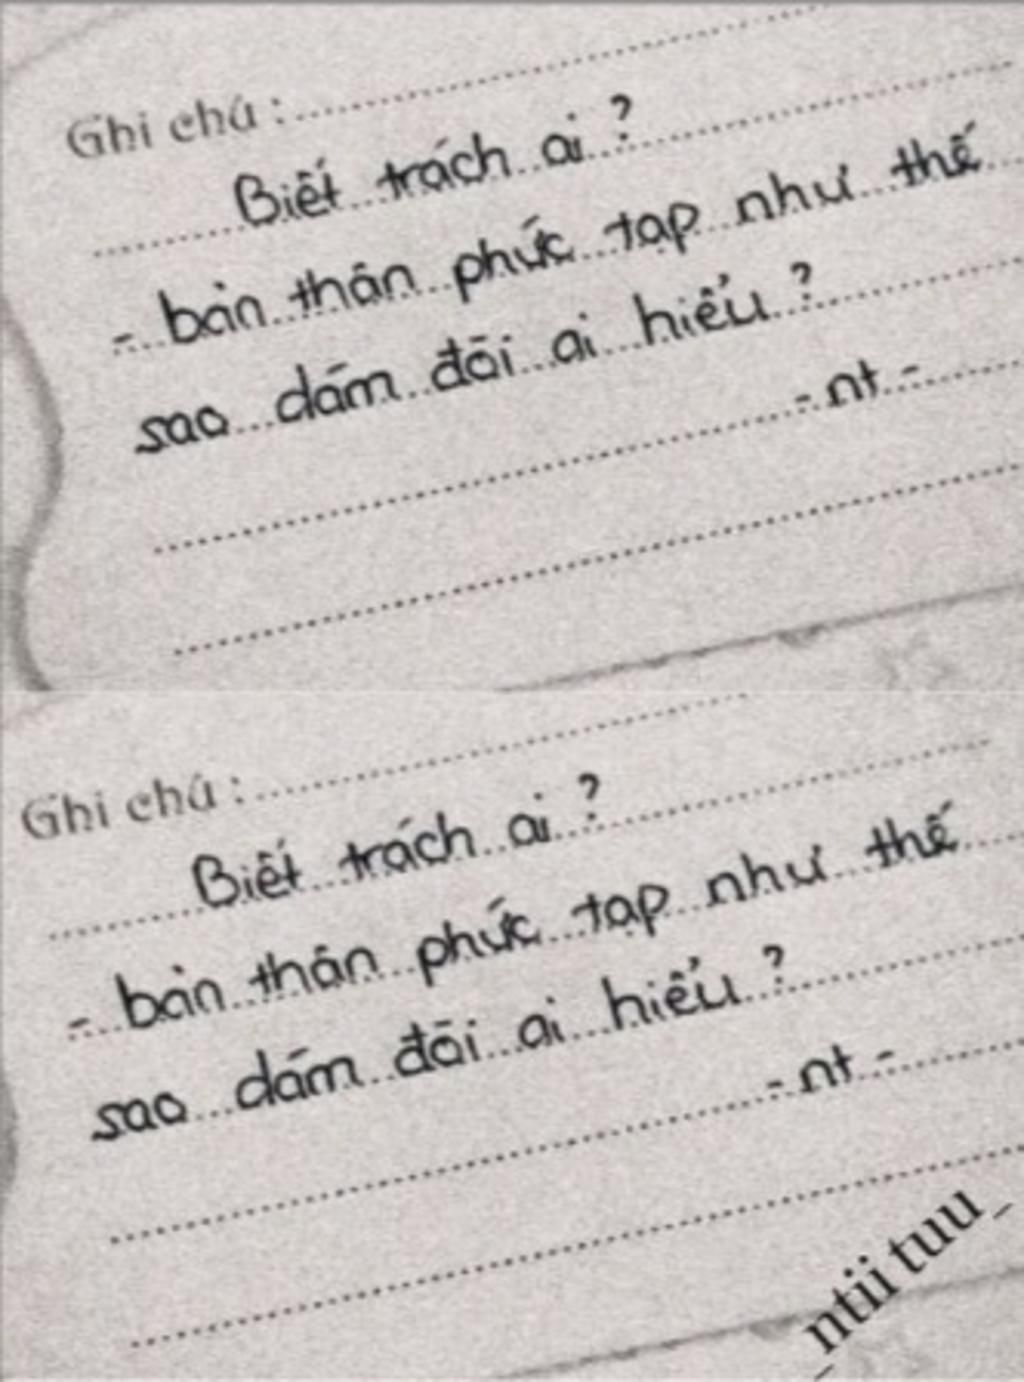 Ghi chú :
Biết trách ai ?
- bản thân phức tạp như thế
sao dám đòi ai hiểu ?
- nt -
Ghi chú :
Biết trách ai ?
- bản thân phức tạp như thế
sao dám đòi ai hiểu ?
- nt -
_ntii tuu_